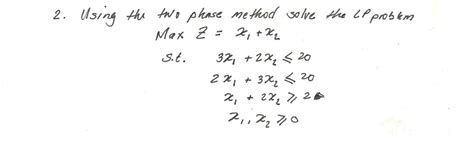 2. Using the two phase method solve the LP problem
Max Z = x₁ + x₂
s.t. 3x₁ + 2x₂ ≤ 20
2x₁ + 3x₂ ≤ 20
x₁ + 2x₂ ≥ 2
x₁, x₂ ≥ 0